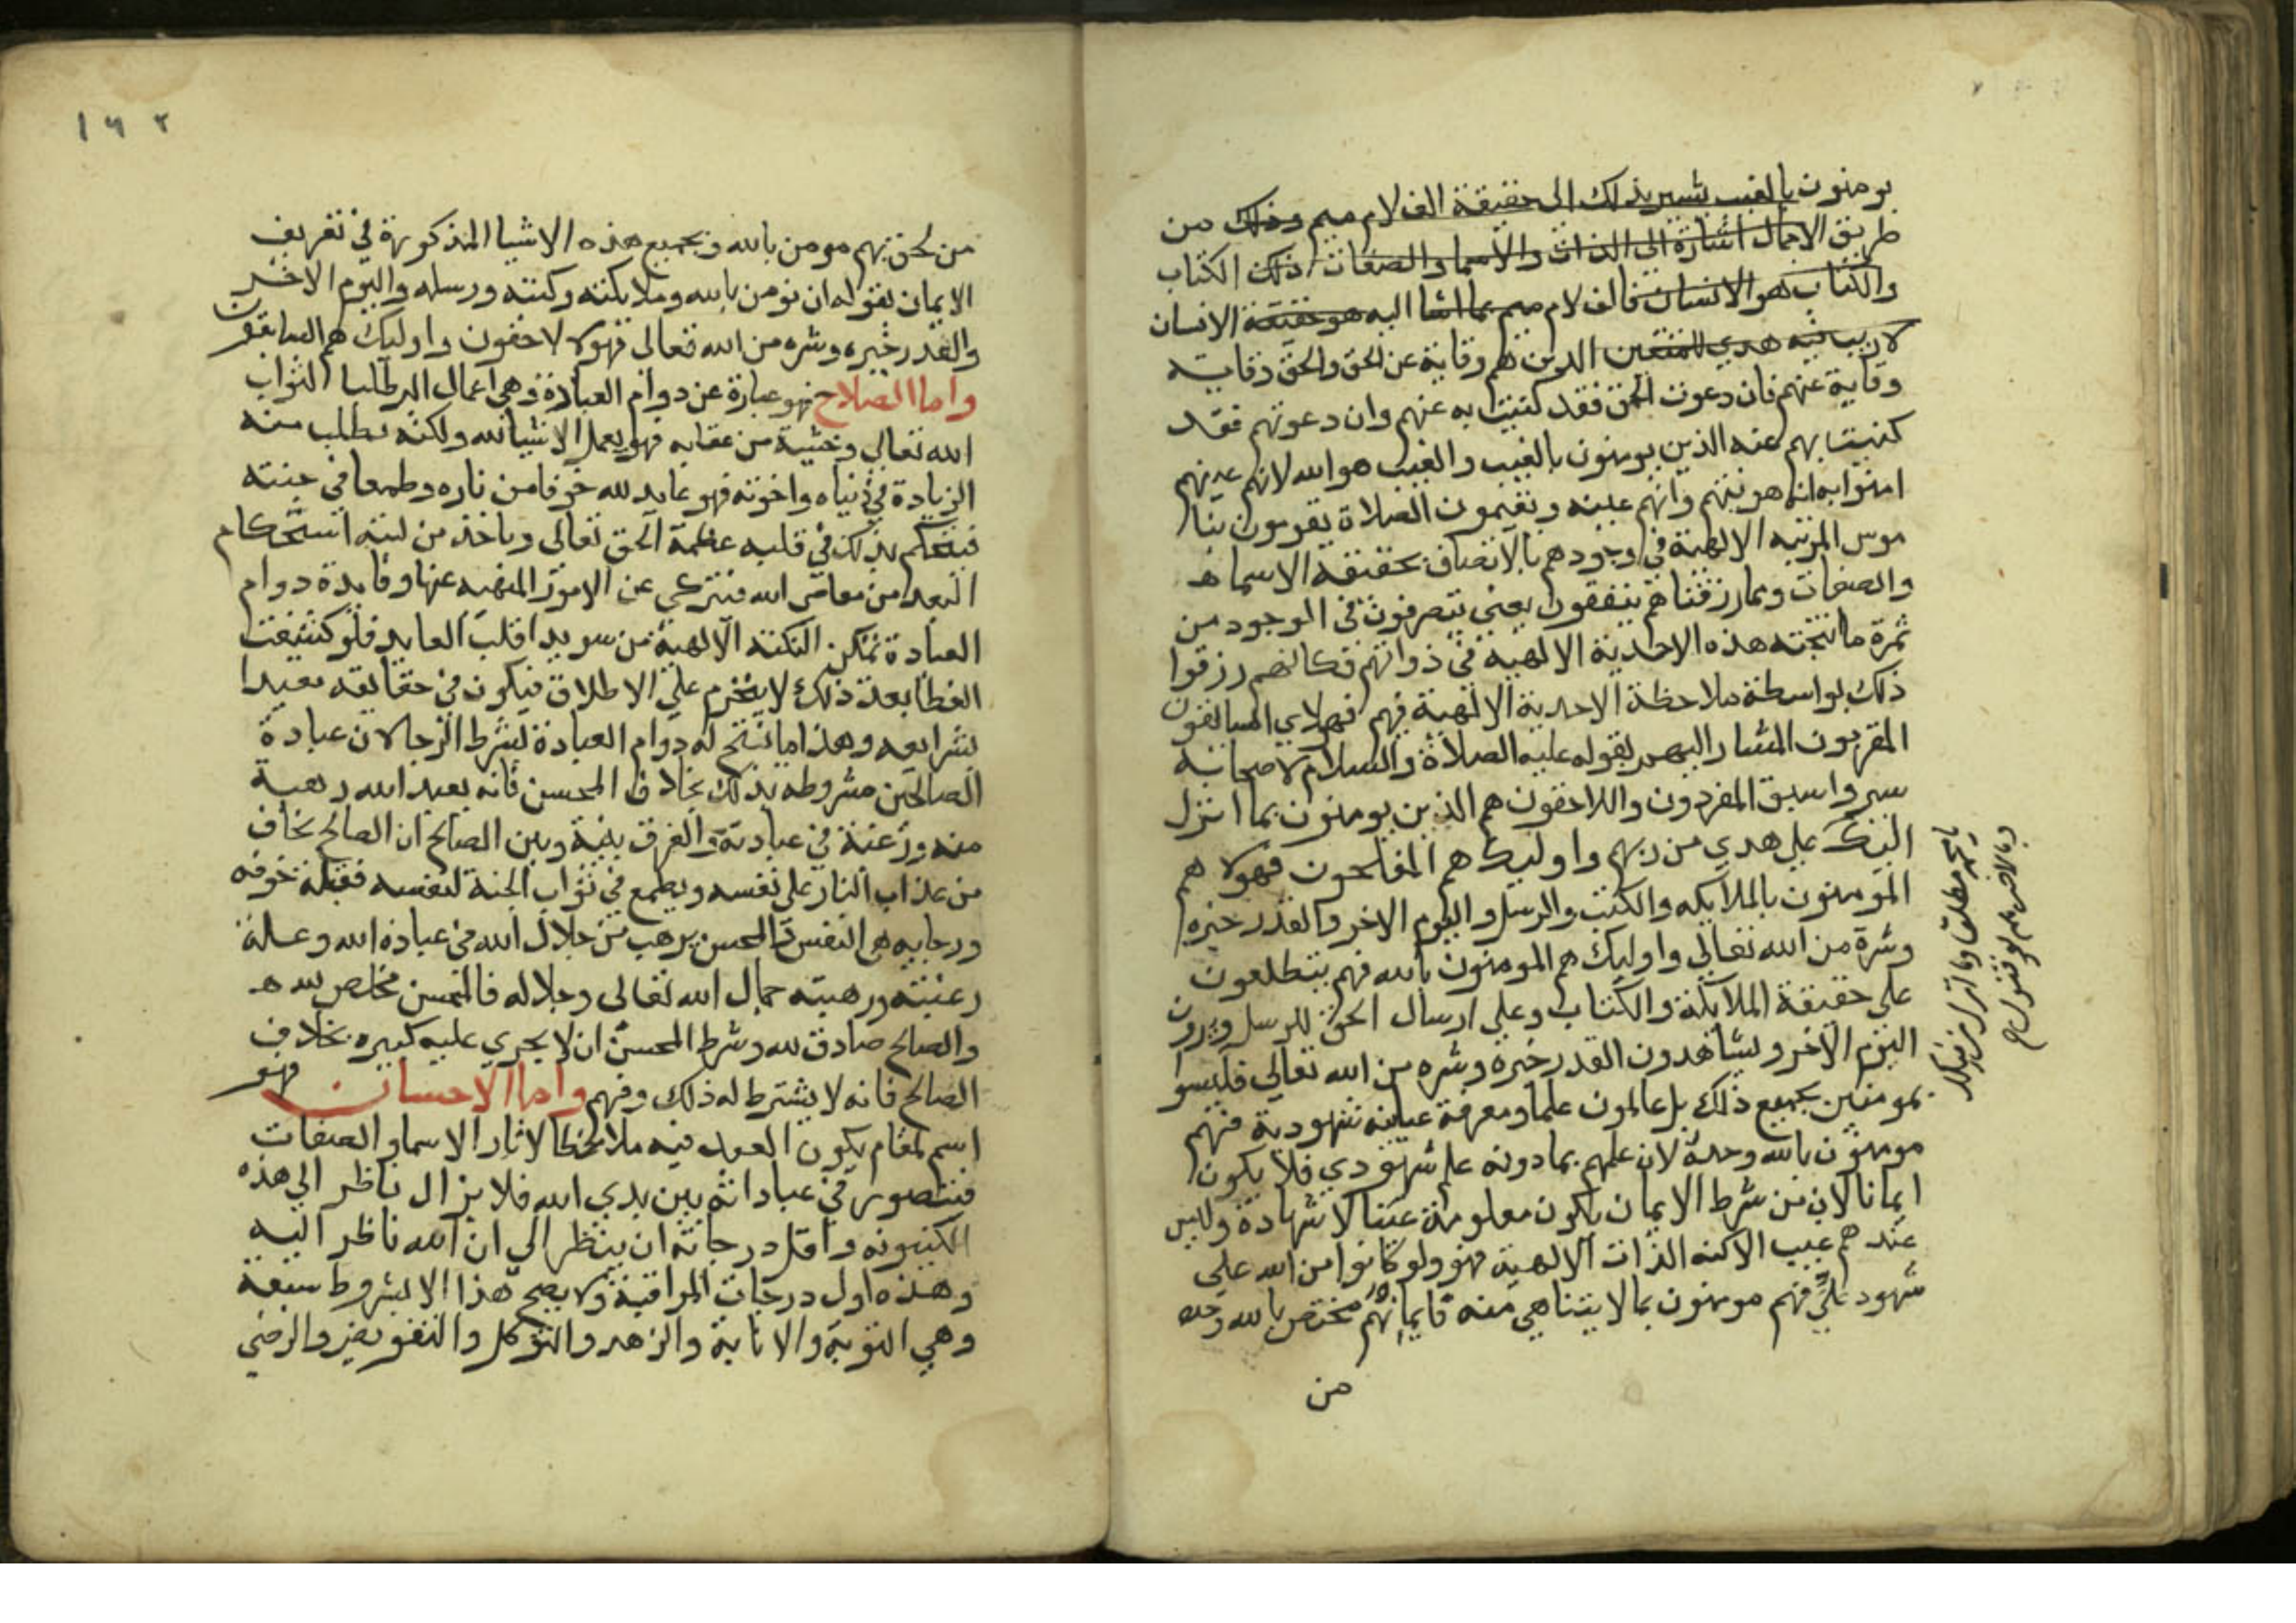 يومنون بالغيب يشير بذلك الى حقيقة الف لام ميم وذلك من
طريق الاجمال اشارة الى الذات والاسما والصفات ذلك الكتاب
والكتاب هو الانسان فالف لام ميم بما اشا اليه هو حقيقة الانسان
لا ريب فيه هدي للمتقين الذين هم وقاية عن الحق والحق وقاية
وقاية عنهم فان دعوت الحق فقد كنيت به عنهم وان دعوتهم فقد
كنيت بهم عنه الذين يومنون بالغيب والغيب هو الله لانهم عينهم
امنوا به انه هويتهم وانهم عينه ويقيمون الصلاة يقومون بنا
موس المرتبه الالهية في وجودهم بالاتصاف بحقيقة الاسما
والصفات ومما رزقناهم ينفقون يعني يتصرفون في الوجود من
ثمرة ما انتجته هذه الاحدية الالهيه في ذواتهم فكانهم رزقوا
ذلك بواسطة ملاحظة الاحدية الالهية فيهم فهولاي السابقون
المقربون المشار اليهم بقوله عليه الصلاة والسلام لاصحابه
سيروا سبق المفردون واللاحقون هم الذين يومنون بما انزل
اليك علي هدي من ربهم واوليك هم المفلحون فهولا هم
المومنون بالملايكه والكتب والرسل واليوم الاخر والقدر خيره
وشره من الله تعالي واوليك هم المومنون بالله فهم يتطلعون
على حقيقة الملايكة والكتاب وعلي ارسال الحق للرسل ويرون
اليوم الاخر ويشاهدون القدر خيره وشره من الله تعالي فليسوا
بمومنين بجميع ذلك بل عالمون علما ومعرفة عيانه شهودية فهم
مومنون بالله وحده لان علمهم بما دونه علم شهودي فلا يكون
ايمانا لان من شرط الايمان يكون معلومه غيبا لا شهادة وليس
عندهم غيب الا كنه الذات الالهية فهو ولو كانوا من الله علي
شهود جلي فهم مومنون بما لا يتناهي منه فايمانهم مختص بالله وحده
من
لحق بهم مومن بالله وبجميع هذه الاشيا المذكورة في تعريف
الايمان بقوله ان تومن بالله وملايكته وكتبه ورسله واليوم الاخر
والقدر خيره وشره من الله تعالى فهولا لاحقون واوليك هم السابقون
واما الصلاح فهو عبارة عن دوام العبادة وهي اعمال البر طلبا لثواب
الله تعالي وخشية من عقابه فهو يعمل الاشيا لله ولكنه يطلب منه
الزيادة في دنياه واخرته فهو عابد لله خوفا من ناره وطمعا في جنته
فيتحكم بذلك في قلبه عظمة الحق تعالى وياخذ من لبه استحكام
البعد من معاصي الله فينزعي عن الامور المنهيه عنها وفايدة دوام
العبادة تمكن النكتة الالهية من سويدا قلب العابد فلو كشفت
الغطا بعد ذلك لا ينخرم علي الاطلاق فيكون في حقايقه مقيدا
بشرايعه وهذا ما انتج له دوام العبادة لشرط الرجا لان عبادة
الصالحين مشروطه بذلك بخلاف المحسن فانه يعبد الله رهبة
منه ورغبة في عبادته والفرق بينه وبين الصالح ان الصالح يخاف
من عذاب النار على نفسه ويطمع في ثواب الجنة لنفسه فعلة خوفه
ورجايه هي النفس والمحسن يرهب من جلال الله في عبادة الله وعلة
رغبته ورهبته جمال الله تعالى وجلاله فالمحسن مخلص لله
والصالح صادق لله وشرط المحسن ان لا يجري عليه كبيره بخلاف
الصالح فانه لا يشترط له ذلك وفهم واما الاحسان فهو
اسم لمقام يكون العبد فيه ملاحظا لاثار الاسما والصفات
فيتصور في عباداته بين يدي الله فلا يزال ناظر الي هذه
الكينونه واقل درجاته ان ينظر الي ان الله ناظر اليه
وهذه اول درجات المراقبة ولا يصح هذا الا بشروط سبعة
وهي التوبة والانابة والزهد والتوكل والتفويض والرضي